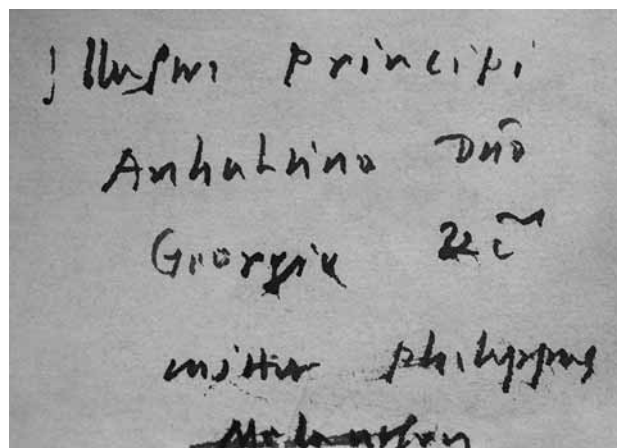 Illustri principi
Anhaltino Dnō
Georgio
mittit philippus
Melanthon